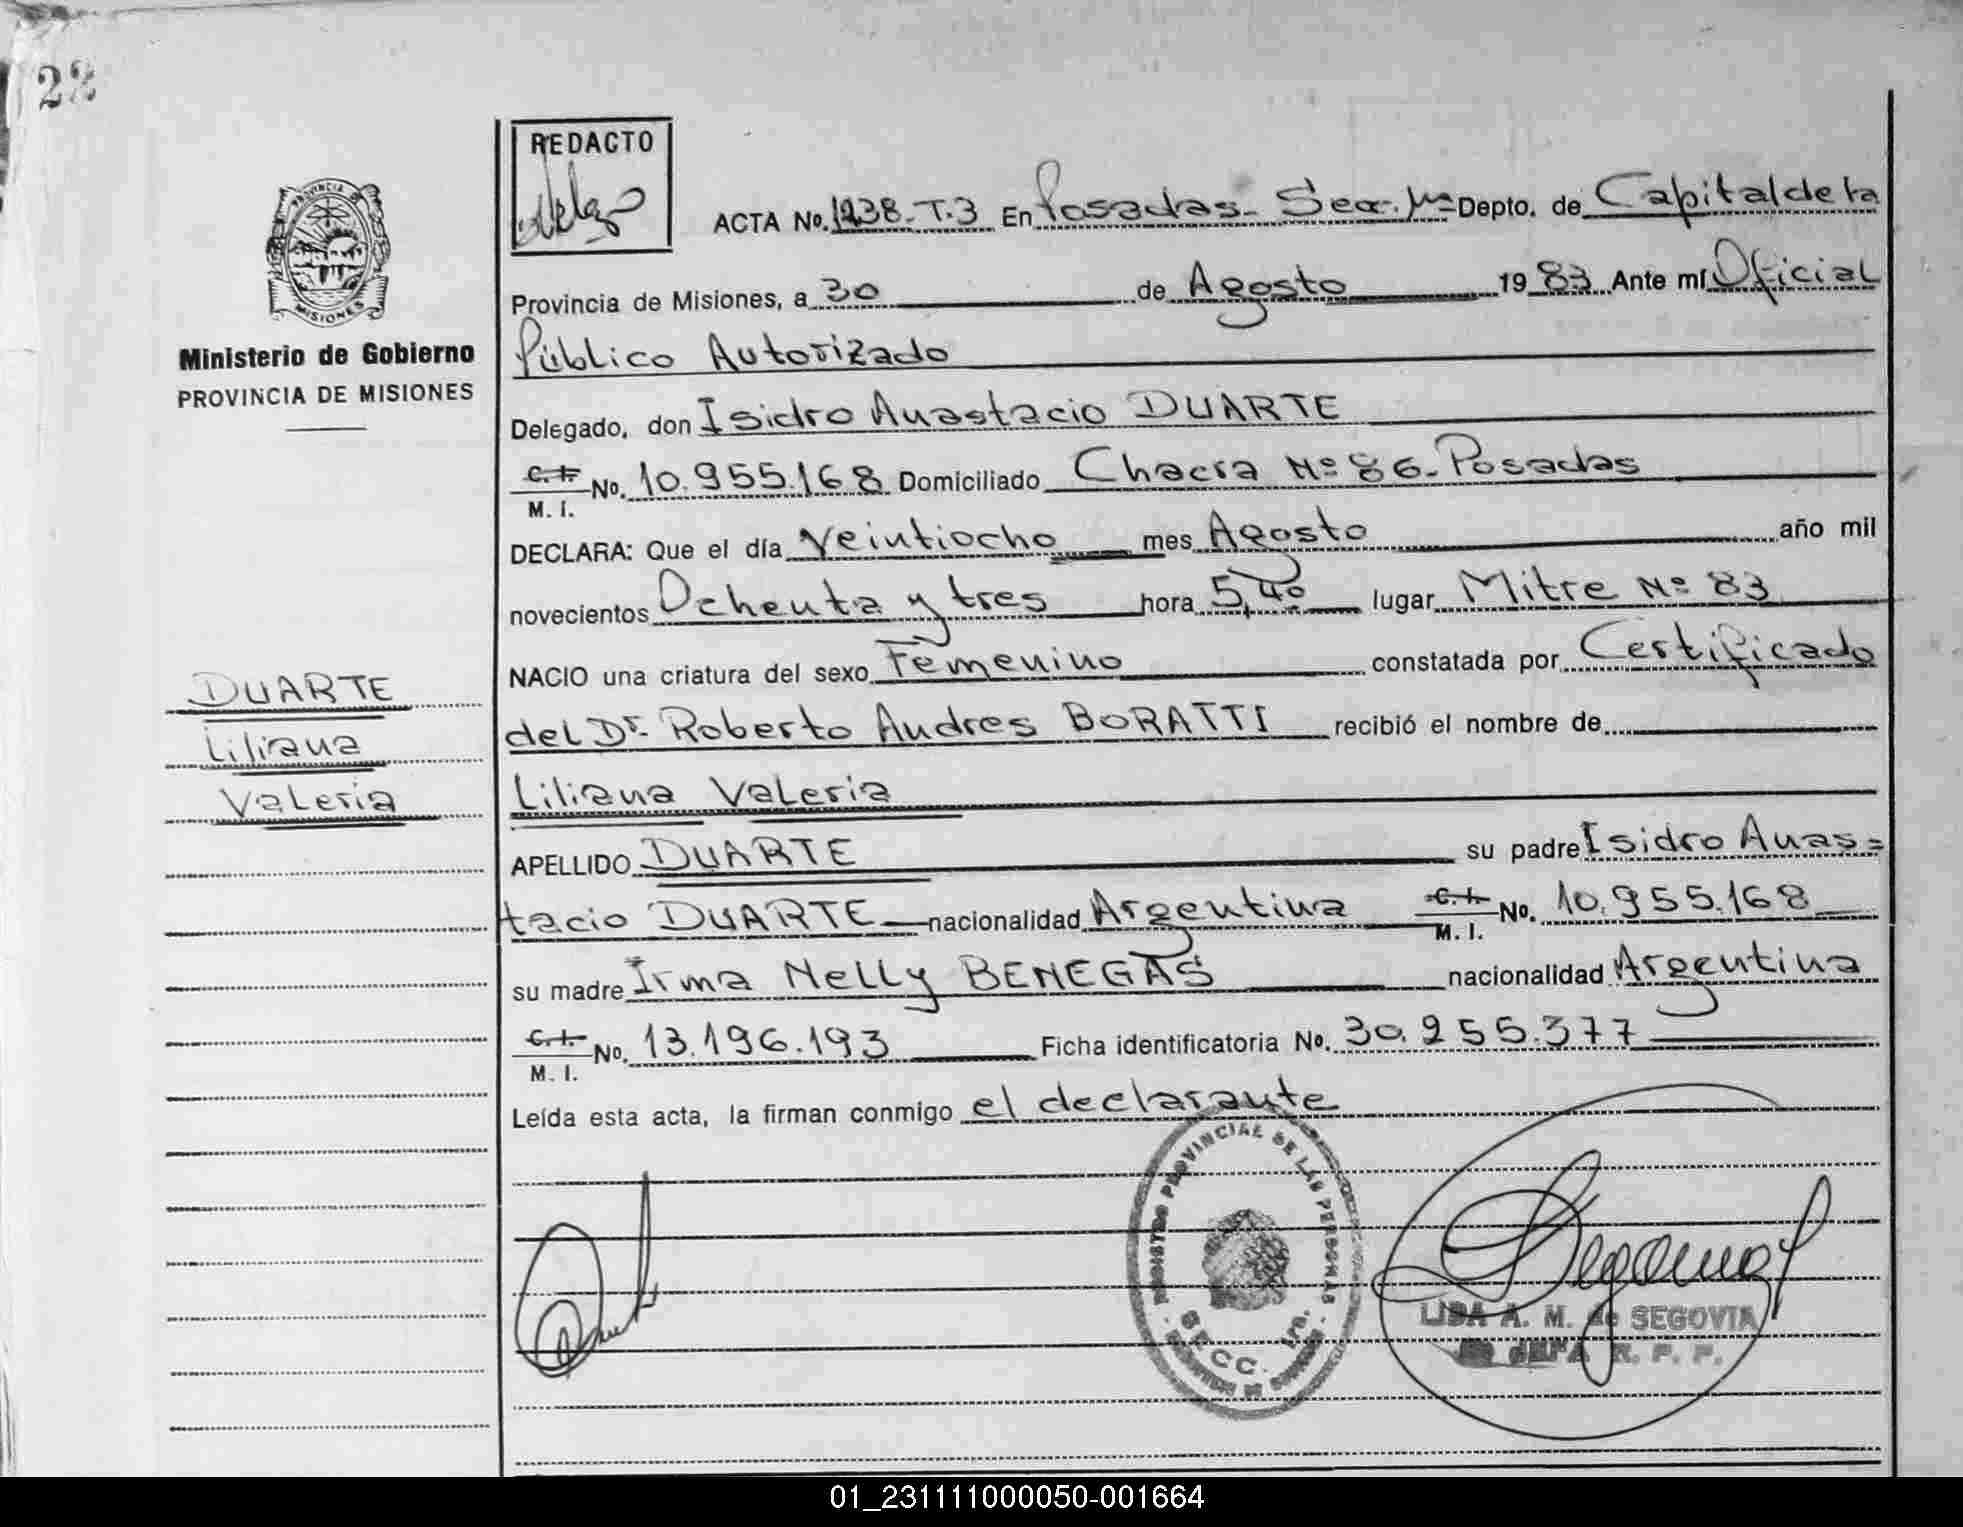 22
REDACTO
PROVINCIA DE
MISIONES
Ministerio de Gobierno
PROVINCIA DE MISIONES
ACTA No. 1238-T.3 En Posadas- Secc. 1ra Depto. de Capital de la
Provincia de Misiones, a 30 de Agosto 1983 Ante mí Oficial
Público Autorizado
Delegado, don Isidro Anastacio DUARTE
C.I. No. 10.955.168 Domiciliado Chacra Nº 86- Posadas
M. I.
DECLARA: Que el día Veintiocho mes Agosto año mil
novecientos Ochenta y tres hora 5,40 lugar Mitre Nº 83
NACIO una criatura del sexo Femenino constatada por Certificado
del Dr. Roberto Andres BORATTI recibió el nombre de
Liliana Valeria
APELLIDO DUARTE su padre Isidro Anas=
tacio DUARTE nacionalidad Argentina C.I. No. 10.955.168
M. I.
su madre Irma Nelly BENEGAS nacionalidad Argentina
C.I. No. 13.196.193 Ficha identificatoria No. 30.255.377
M. I.
Leída esta acta, la firman conmigo el declarante
DUARTE
Liliana
Valeria
REGISTRO PROVINCIAL DE LAS PERSONAS
SECC. 1ra.
Segovia
LIDA A. M. de SEGOVIA
JEFA R. P. P.
01_231111000050-001664